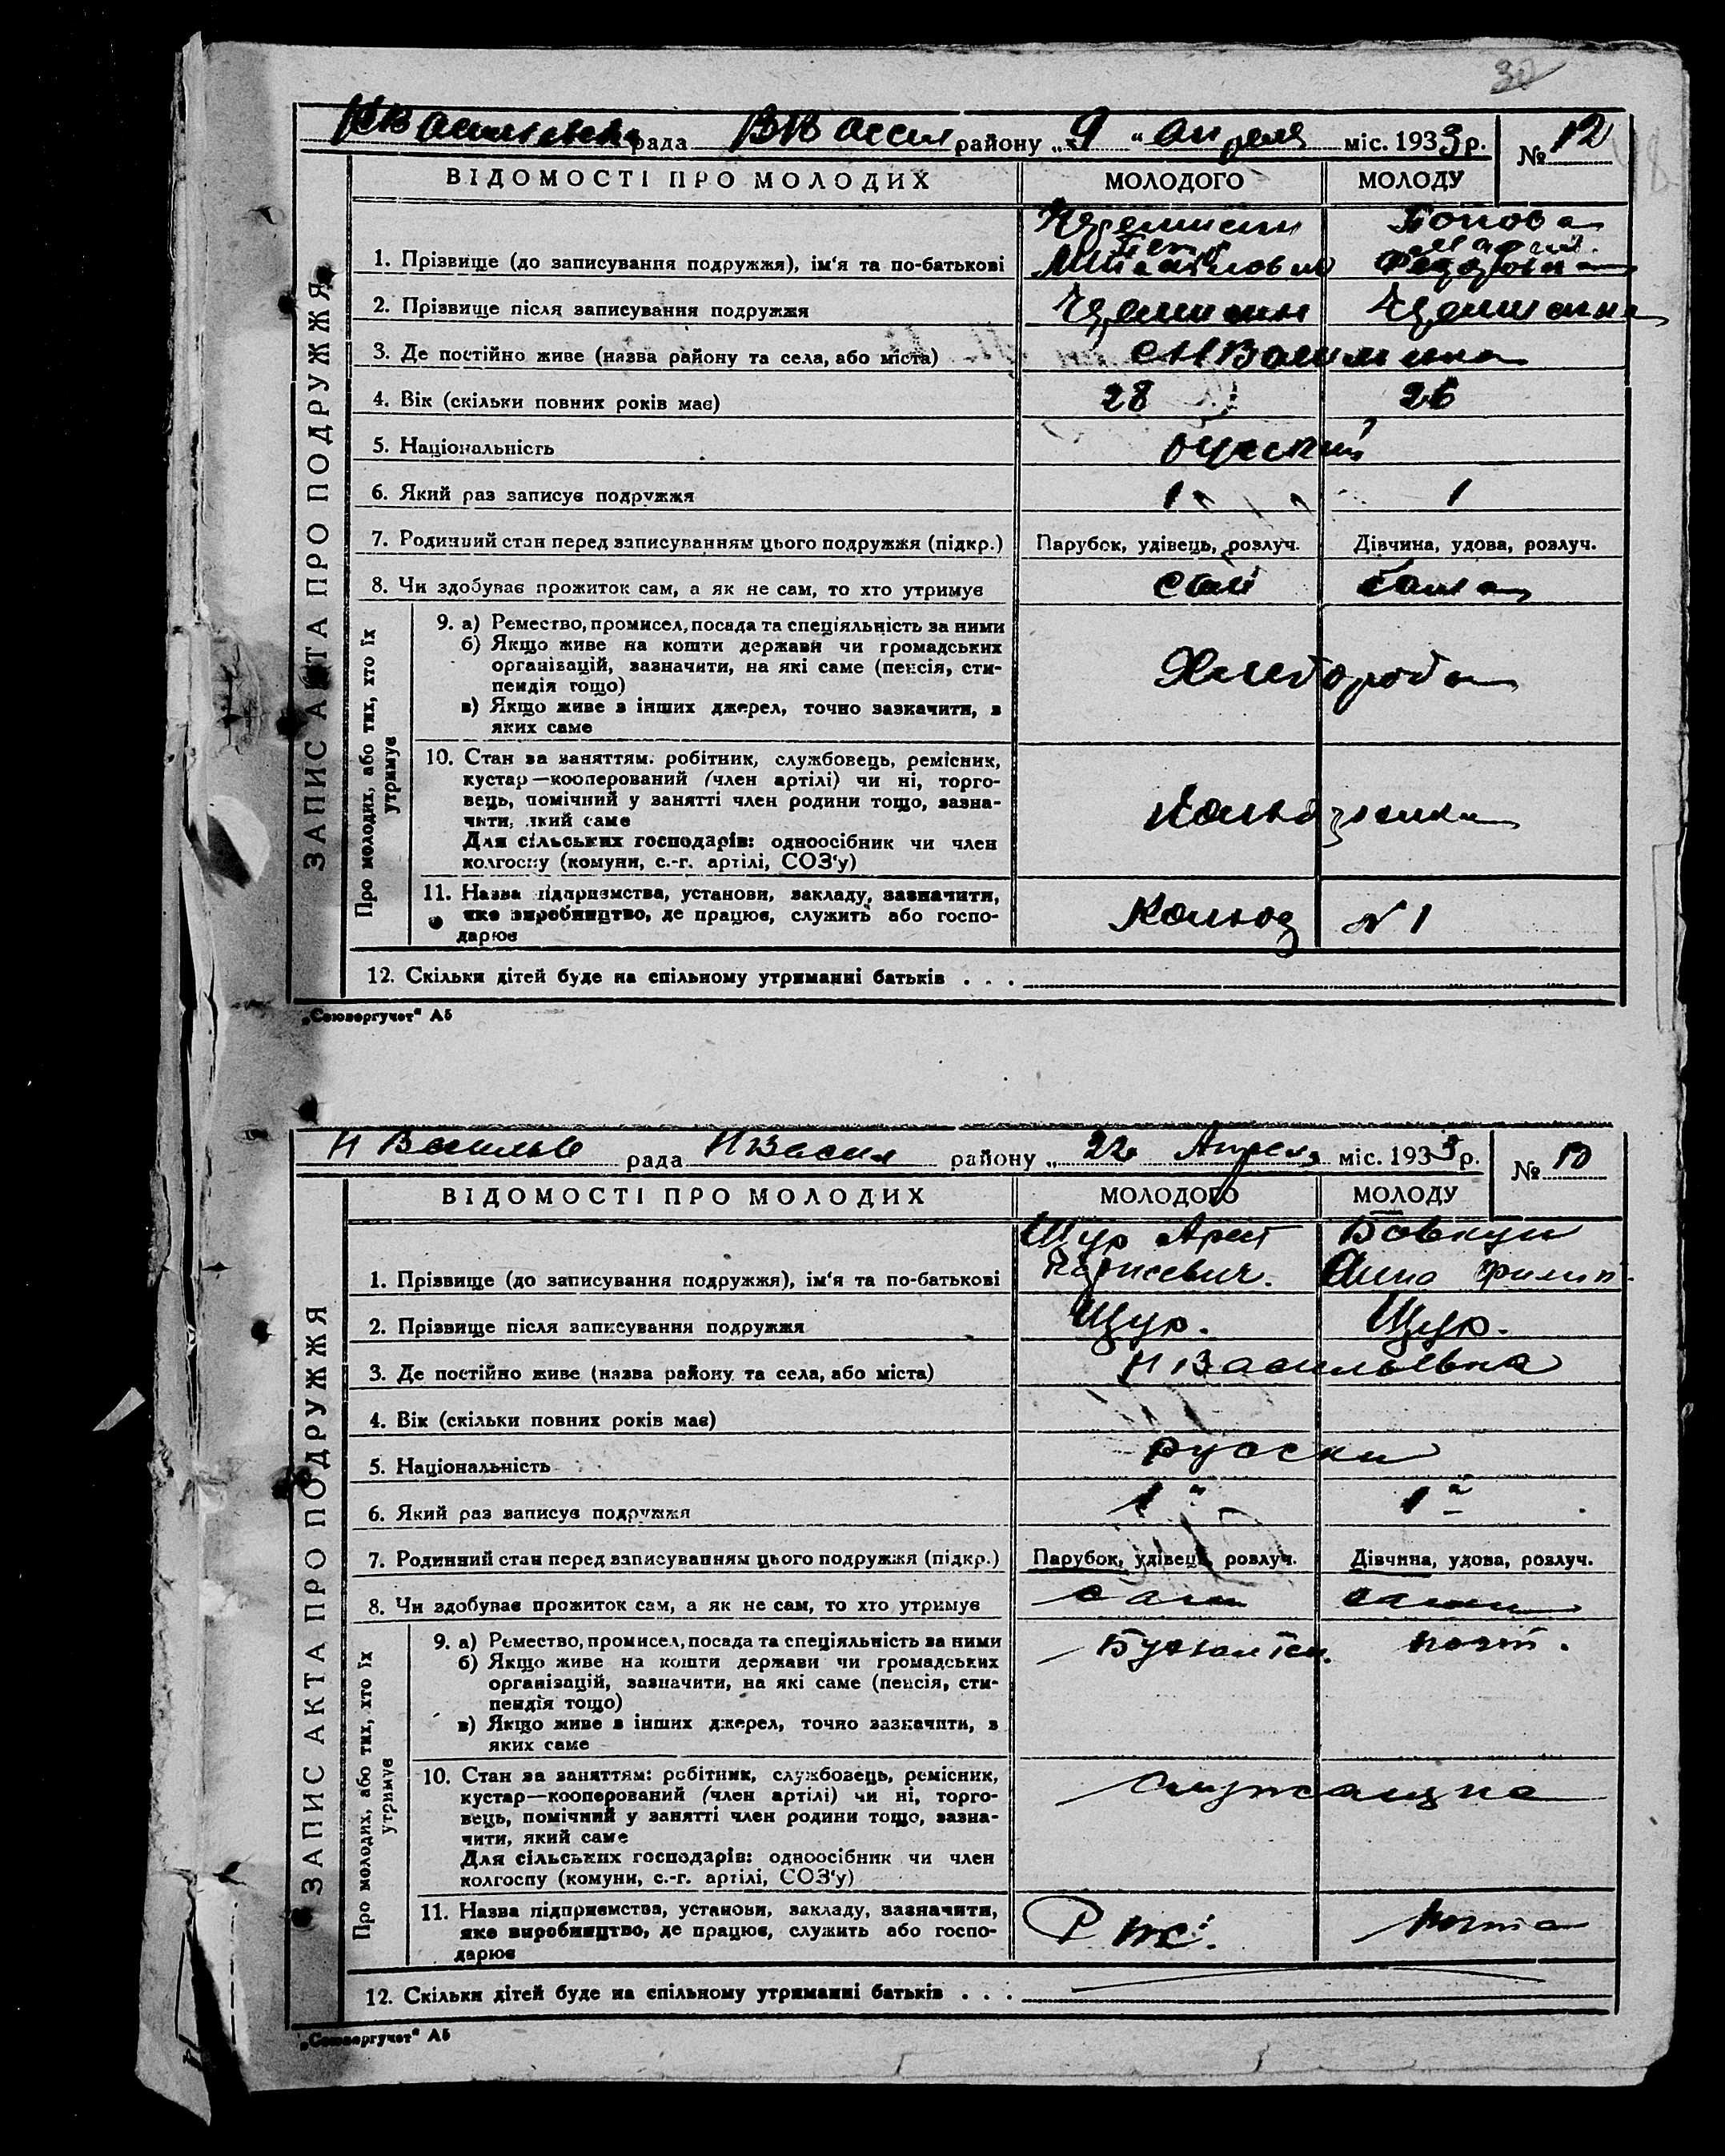 30
рада В ВАссил району „ 9 “ Апреля міс. 1933 р. № 12
ВІДОМОСТІ ПРО МОЛОДИХ МОЛОДОГО МОЛОДУ
ЗАПИС АКТА ПРО ПОДРУЖЖЯ
Попова
1. Прізвище (до записування подружжя), ім'я та по-батькові Михайлович Федоровна
2. Прізвище після записування подружжя
3. Де постійно живе (назва району та села, або міста)
4. Вік (скільки повних років має) 28 26
5. Національність руский
6. Який раз записує подружжя 1 1
7. Родинний стан перед записуванням цього подружжя (підкр.) Парубок, удівець, розлуч. Дівчина, удова, розлуч.
8. Чи здобуває прожиток сам, а як не сам, то хто утримує сам сама
Про молодих, або тих, хто їх утримує
9. а) Ремество, промисел, посада та спеціяльність за ними
б) Якщо живе на кошти держави чи громадських
організацій, зазначити, на які саме (пенсія, сти-
пендія тощо)
в) Якщо живе з інших джерел, точно зазначити, з
яких саме
Хлебороба
10. Стан за заняттям: робітник, службовець, ремісник,
кустар—кооперований (член артілі) чи ні, торго-
вець, помічний у занятті член родини тощо, зазна-
чити, який саме
Для сільських господарів: одноосібник чи член
колгоспу (комуни, с.-г. артілі, СОЗ'у)
11. Назва підприємства, установи, закладу, зазначити,
яке виробництво, де працює, служить або госпо-
дарює
Колхоз N 1
12. Скільки дітей буде на спільному утриманні батьків . . .
„Союзоргучет“ А5
Н Василье рада Н Васил району „ 22 Апреля міс. 1933 р. № 10
ВІДОМОСТІ ПРО МОЛОДИХ МОЛОДОГО МОЛОДУ
ЗАПИС АКТА ПРО ПОДРУЖЖЯ
Щур Арест Бовкун
1. Прізвище (до записування подружжя), ім'я та по-батькові Анна Филип.
2. Прізвище після записування подружжя Щур. Щур.
3. Де постійно живе (назва району та села, або міста) Н Васильевка
4. Вік (скільки повних років має)
5. Національність русски
6. Який раз записує подружжя 1й 1й
7. Родинний стан перед записуванням цього подружжя (підкр.) Парубок, удівець, розлуч. Дівчина, удова, розлуч.
8. Чи здобуває прожиток сам, а як не сам, то хто утримує сам сама
Про молодих, або тих, хто їх утримує
9. а) Ремество, промисел, посада та спеціяльність за ними
б) Якщо живе на кошти держави чи громадських
організацій, зазначити, на які саме (пенсія, сти-
пендія тощо)
в) Якщо живе з інших джерел, точно зазначити, з
яких саме
Бухалтер. почт.
10. Стан за заняттям: робітник, службовець, ремісник,
кустар—кооперований (член артілі) чи ні, торго-
вець, помічний у занятті член родини тощо, зазна-
чити, який саме
Для сільських господарів: одноосібник чи член
колгоспу (комуни, с.-г. артілі, СОЗ'у)
служащие
11. Назва підприємства, установи, закладу, зазначити,
яке виробництво, де працює, служить або госпо-
дарює
почта
12. Скільки дітей буде на спільному утриманні батьків . . .
„Союзоргучет“ А5